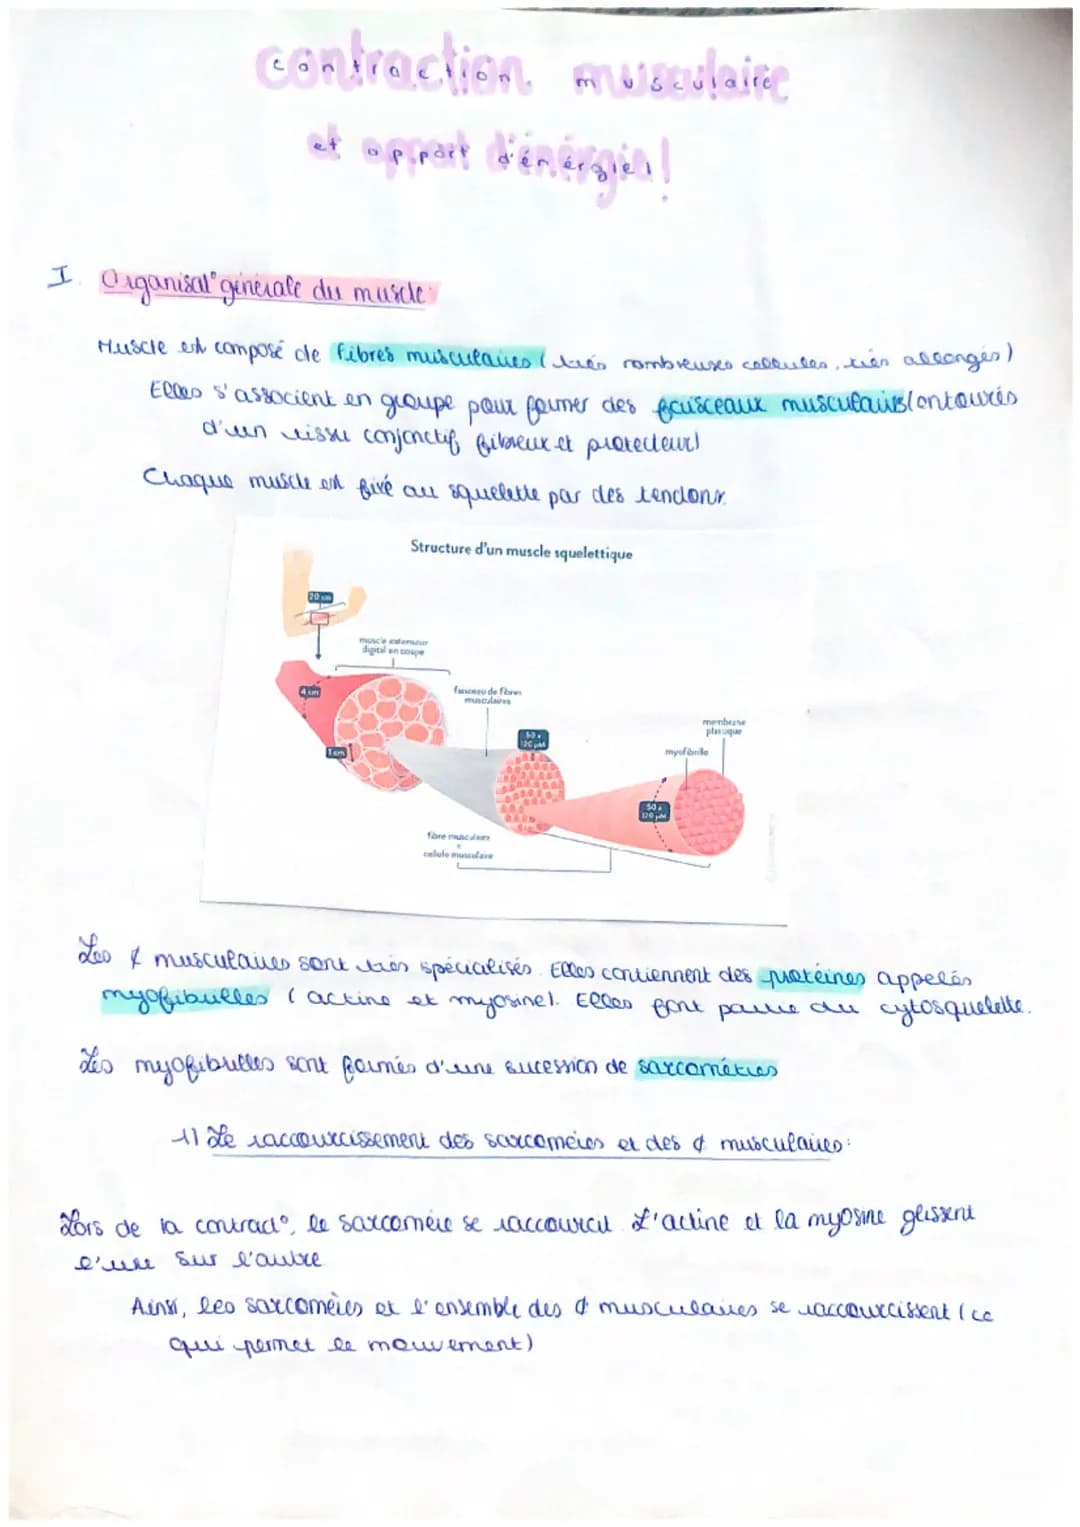 contraction musculaire
et apport d'énérgie!
I. Organisat° générale du muscle:
Muscle est composé de fibres musculaires (très nombreuses cellules, très allongés)
Elles s'associent en groupe pour former des faisceaux musculaires (entourés
d'un tissu conjonctif fibreux et protecteur)
Chaque muscle est fixé au squelette par des tendons.
Structure d'un muscle squelettique
20 cm
muscle extenseur
digital en coupe
4 cm
faisceau de fibres
musculaires
membrane
plasmique
50 à
120 µM
myofibrille
1 cm
50 à
120 µM
fibre musculaire
=
cellule musculaire
Les ¢ musculaires sont très spécialisés. Elles contiennent des protéines appelés
myofibrilles (actine et myosine). Elles font partie du cytosquelette.
Les myofibrilles sont formés d'une sucession de sarcomères
1) Le raccourcissement des sarcomères et des ¢ musculaires:
Lors de la contract°, le sarcomère se raccourcit. L'actine et la myosine glissent
l'une sur l'autre
Ainsi, les sarcomères et l'ensemble des ¢ musculaires se raccourcissent (ce
qui permet le mouvement)